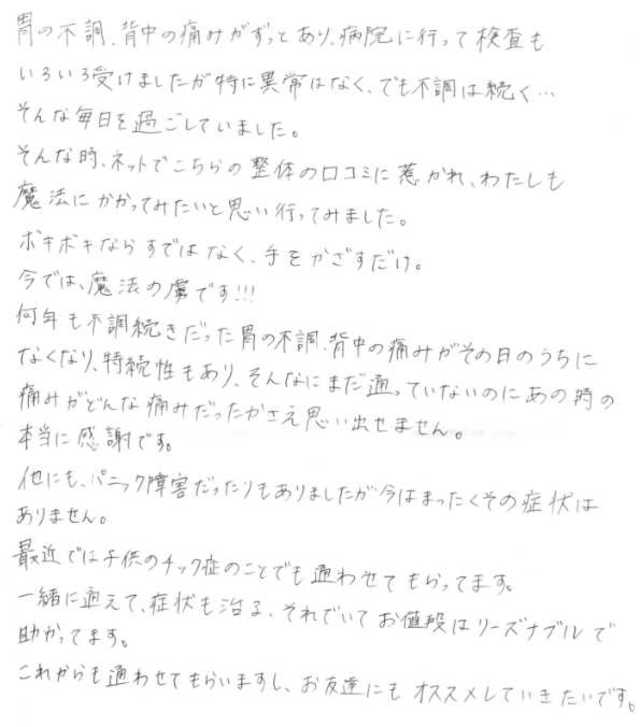 胃の不調、背中の痛みがずっとあり、病院に行って検査も
いろいろ受けましたが特に異常はなく、でも不調は続く…
そんな毎日を過ごしていました。
そんな時、ネットでこちらの整体の口コミに惹かれ、わたしも
魔法にかかってみたいと思い行ってみました。
ボキボキならすではなく、手をかざすだけ。
今では、魔法の虜です!!!
何年も不調続きだった胃の不調、背中の痛みがその日のうちに
なくなり、持続性もあり、そんなにまだ通っていないのにあの時の
痛みがどんな痛みだったかさえ思い出せません。
本当に感謝です。
他にも、パニック障害だったりもありましたが今はまったくその症状は
ありません。
最近では子供のチック症のことでも通わせてもらってます。
一緒に通えて、症状も治る、それでいてお値段はリーズナブルで
助かってます。
これからも通わせてもらいますし、お友達にもオススメしていきたいです。